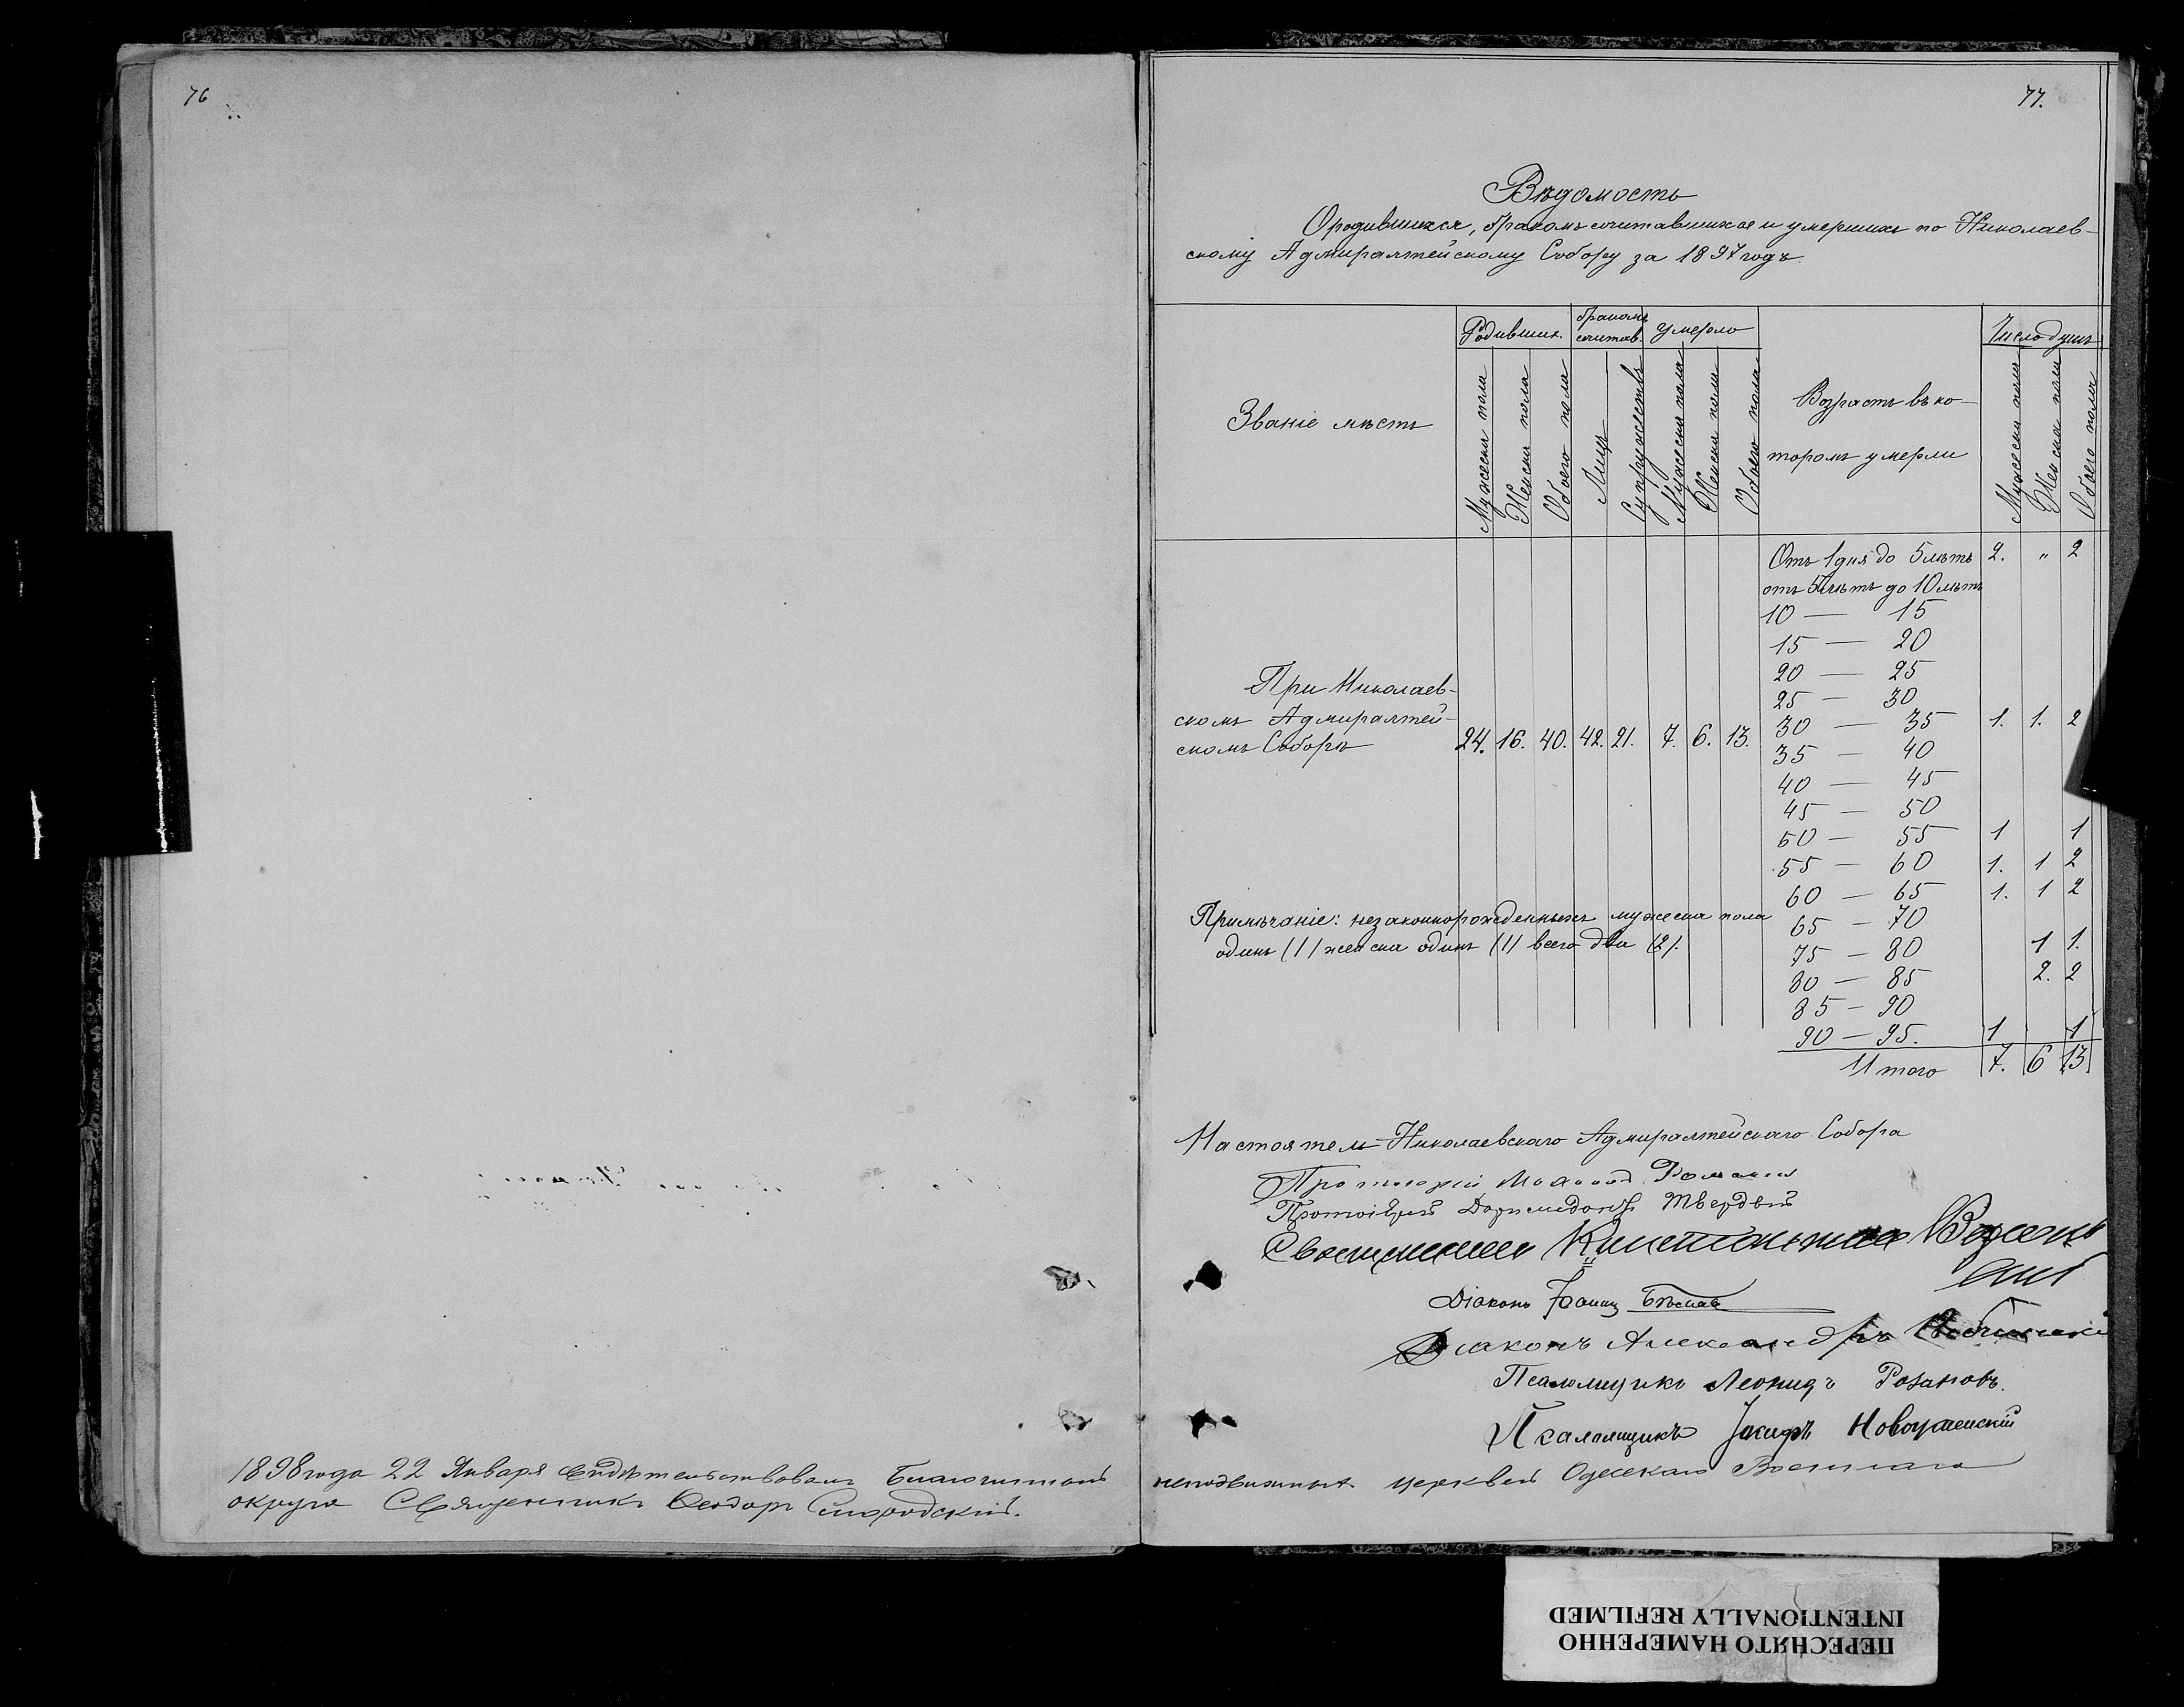 76
1898 года 22 Января Свидѣтельствовалъ Благочинный
округа Священникъ Ѳеодоръ
77.
Вѣдомость
О родившихся, бракомъ сочетавшихся и умершихъ по Николаев-
скому Адмиралтейскому Собору за 1897 годъ
Званіе мѣстъ
Родивших.
бракомъ сочетав.
умерло
Возрастъ въ ко-
торомъ умерли
Число душъ
Мужеска пола
Женска пола
Обоего пола
Лицъ
Супружествъ
Мужеска пола
Женска пола
Обоего пола
Мужеска пола
Женска пола
Обоего пола
Отъ 1 дня до 5 лѣтъ 2. " 2
отъ 5 лѣтъ до 10 лѣтъ
10 — 15
15 — 20
20 — 25
25 — 30
30 — 35 1. 1. 2
35 — 40
40 — 45
45 — 50
50 — 55 1 1
55 — 60 1. 1 2
60 — 65 1. 1 2
65 — 70
75 — 80 1 1.
80 — 85 2. 2
85 — 90
90 — 95. 1 1
Итого 7. 6 13
При Николаев-
скомъ Адмиралтей-
скомъ Соборѣ 24. 16. 40. 42. 21. 7. 6. 13.
Примѣчаніе: незаконнорожденныхъ мужеска пола
одинъ (1) женска одинъ (1) всего два (2).
Настоятель Николаевскаго Адмиралтейскаго Собора
Протоіерей
Протоіерей Доримедонтъ Твердый
Священникъ
Діаконъ
Діаконъ Александръ
Псаломщикъ Леонидъ Розановъ.
Псаломщикъ
неподвижныхъ церквей Одесскаго Военнаго
ПЕРЕСНЯТО НАМЕРЕННО
INTENTIONALLY REFILMED